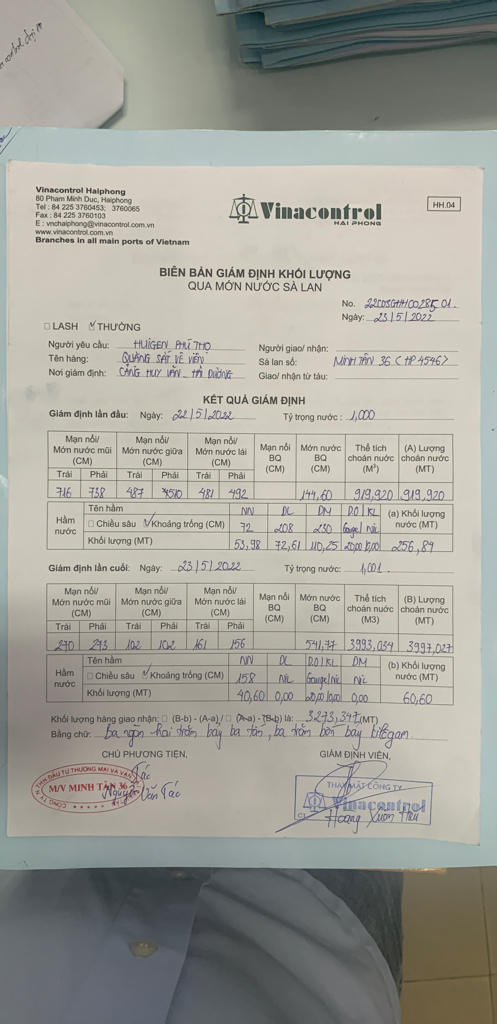 Vinacontrol Haiphong
80 Pham Minh Duc, Haiphong
Tel : 84 225 3760453; 3760065
Fax : 84 225 3760103
E : vnchaiphong@vinacontrol.com.vn
www.vinacontrol.com.vn
Branches in all main ports of Vietnam
Vinacontrol
HAI PHONG
HH.04
BIÊN BẢN GIÁM ĐỊNH KHỐI LƯỢNG
QUA MỚN NƯỚC SÀ LAN
No.
Ngày: 23/5/2022
☐ LASH ☑ THƯỜNG
Người yêu cầu: HUIGEN PHÚ THỌ Người giao/ nhận:
Tên hàng: QUẶNG SẮT VÊ VIÊN Sà lan số: MINH TÂN 36 (HP 4546)
Nơi giám định: CẢNG HUY VĂN - HẢI DƯƠNG Giao/ nhận từ tàu:
KẾT QUẢ GIÁM ĐỊNH
Giám định lần đầu: Ngày: 22/5/2022 Tỷ trọng nước : 1,000
Mạn nổi/ Mớn nước mũi (CM) Mạn nổi/ Mớn nước giữa (CM) Mạn nổi/ Mớn nước lái (CM) Mạn nổi BQ (CM) Mớn nước BQ (CM) Thể tích choán nước (M³) (A) Lượng choán nước (MT)
Trái Phải Trái Phải Trái Phải
716 738 487 481 492 144,60 919,920 919,920
Hầm nước Tên hầm NN DL DM D.O KL (a) Khối lượng nước (MT)
☐ Chiều sâu ☑ Khoảng trống (CM) 72 208 230
Khối lượng (MT) 53,98 72,61 110,25 256,84
Giám định lần cuối: Ngày: 23/5/2022 Tỷ trọng nước: 1,001
Mạn nổi/ Mớn nước mũi (CM) Mạn nổi/ Mớn nước giữa (CM) Mạn nổi/ Mớn nước lái (CM) Mạn nổi BQ (CM) Mớn nước BQ (CM) Thể tích choán nước (M3) (B) Lượng choán nước (MT)
Trái Phải Trái Phải Trái Phải
270 293 102 102 161 156 541,77 3993,034 3997,027
Hầm nước Tên hầm NN DL D.O KL DM (b) Khối lượng nước (MT)
☐ Chiều sâu ☑ Khoảng trống (CM) 158 Nil Nil
Khối lượng (MT) 40,60 0,00 0,00 60,60
Khối lượng hàng giao nhận: ☐ (B-b) - (A-a) / ☐ (A-a) - (B-b) là: 3273,347 (MT)
Bằng chữ: ba ngàn hai trăm bảy ba tấn, ba trăm bốn bảy kilôgam
CHỦ PHƯƠNG TIỆN, GIÁM ĐỊNH VIÊN,
M/V MINH TÂN 36
Tác
Nguyễn Văn Tác
THAY MẶT CÔNG TY
Vinacontrol